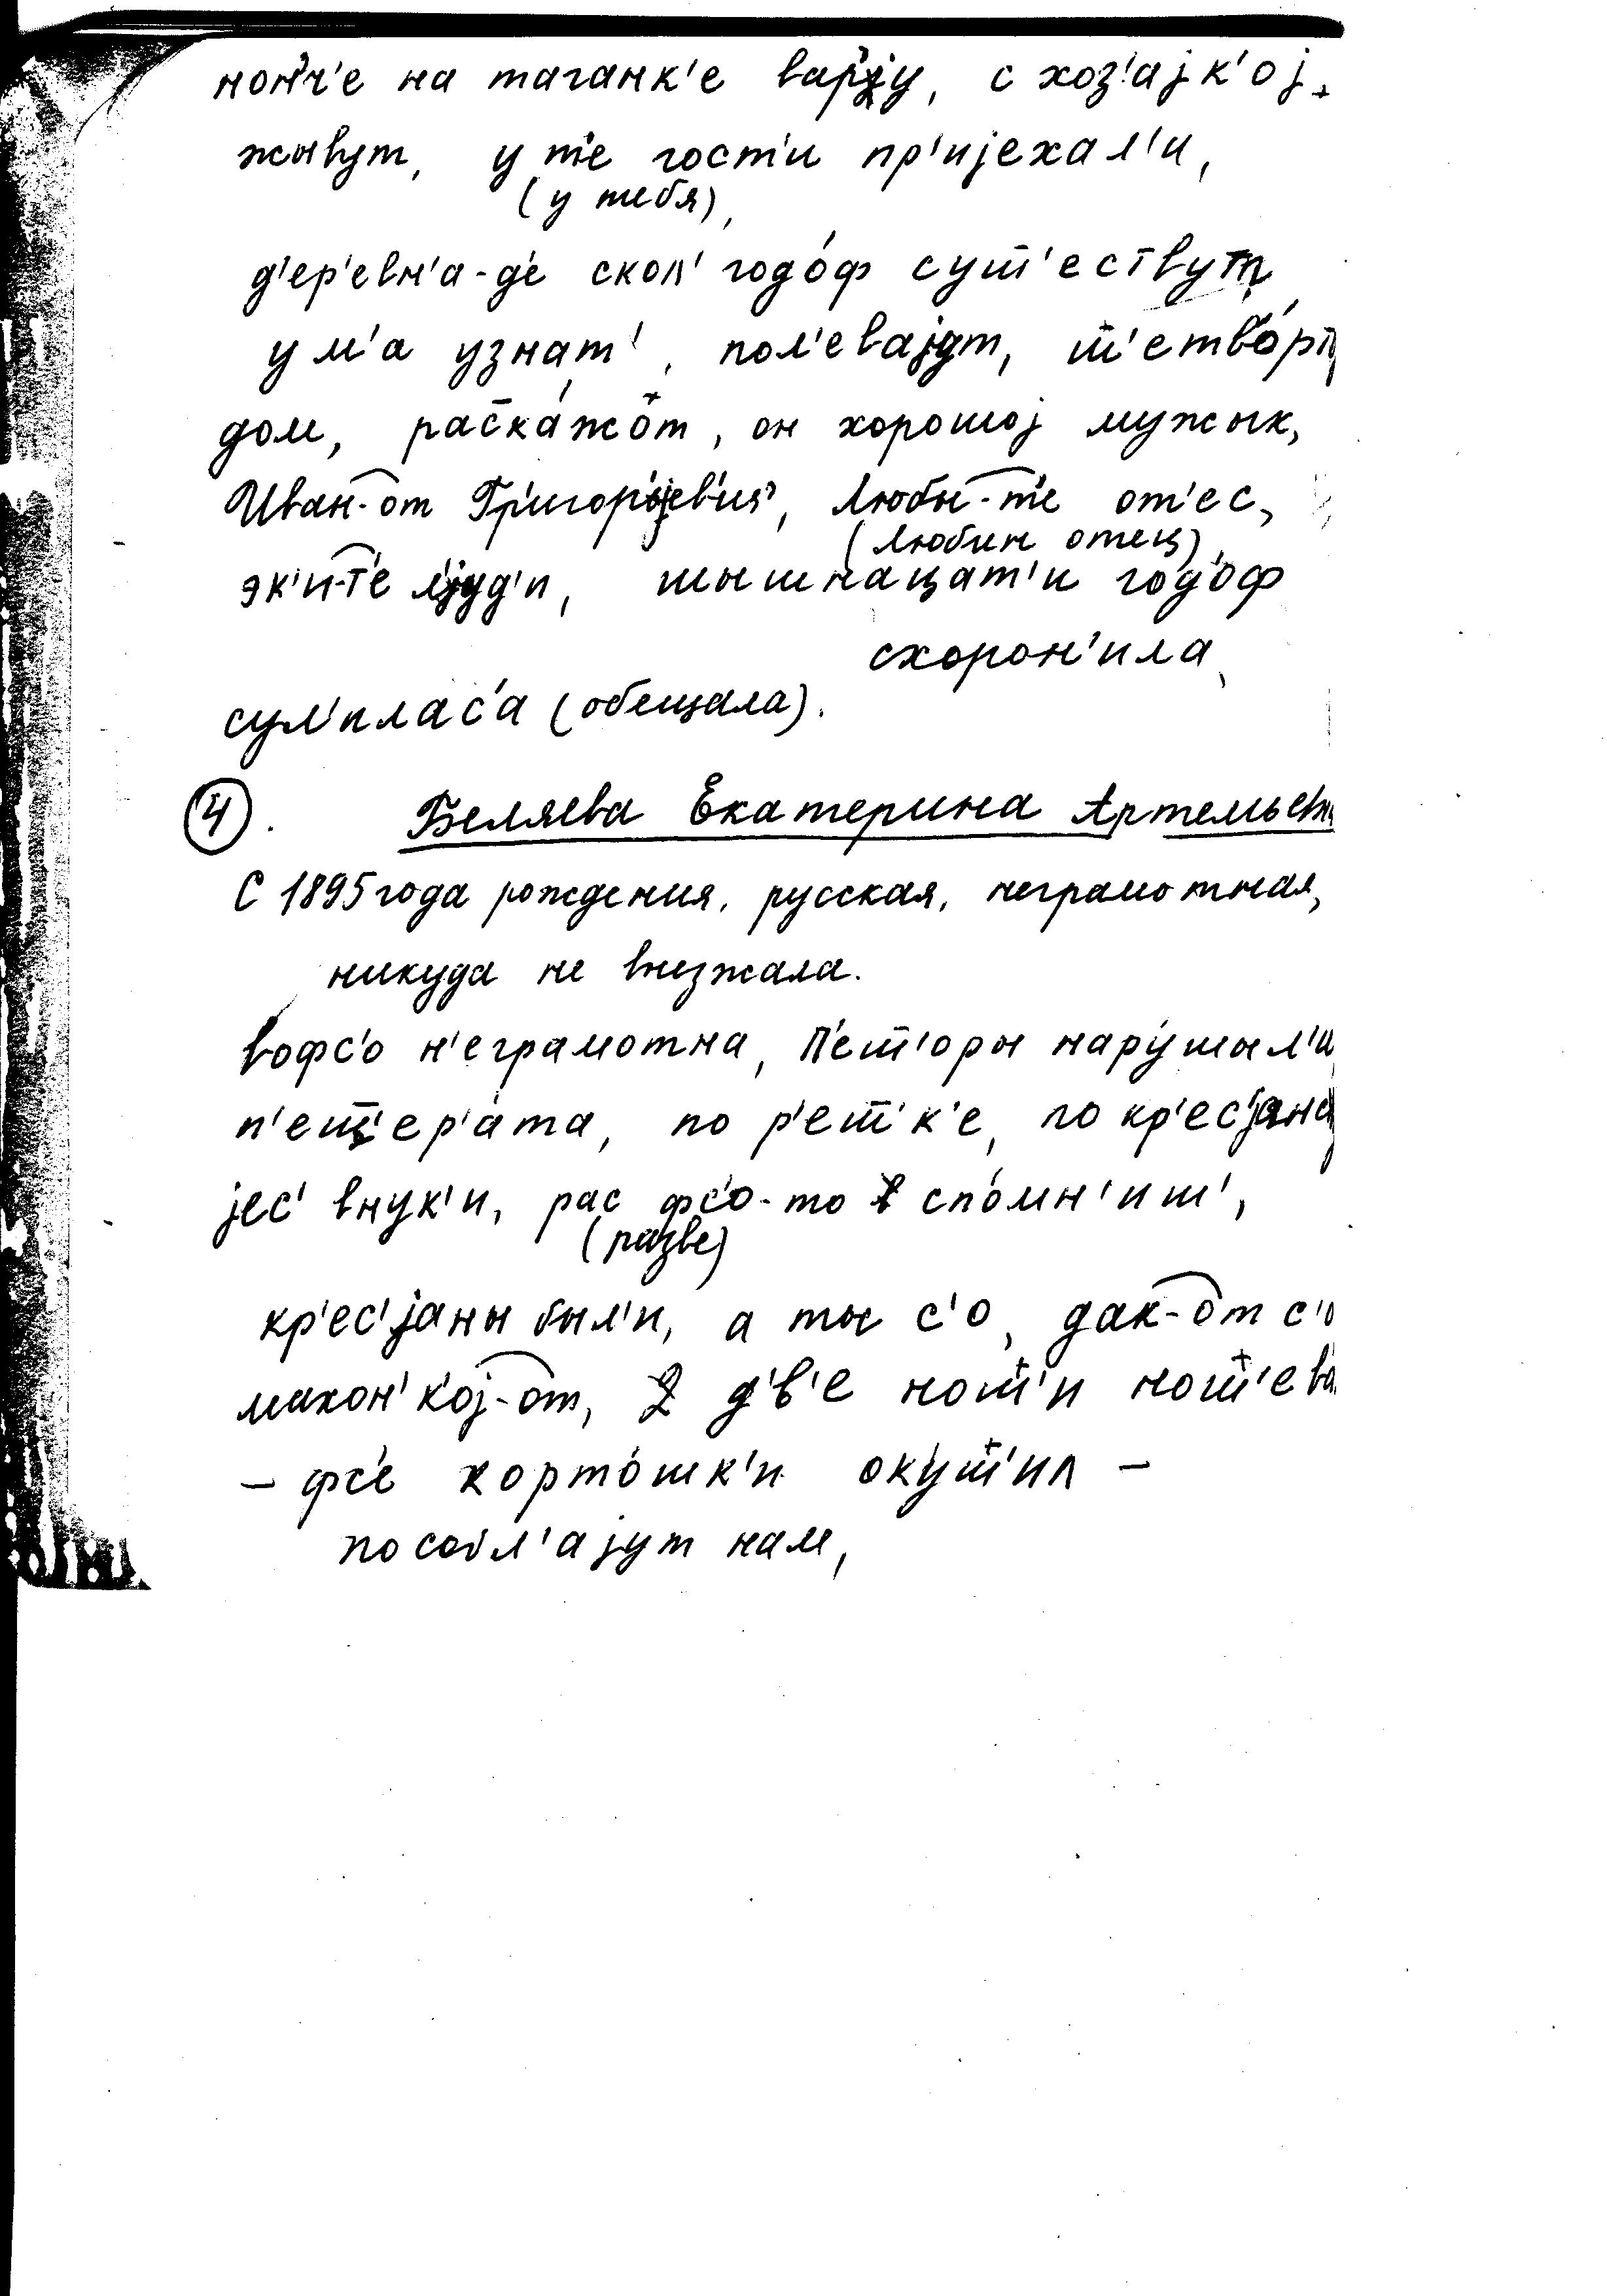 нон'ч'е на таганк'е вар'у, с хоз'ајк'ој.
жывут, у т'е гост'и пр'ијехал'и,
(у тебя),
д'ер'евн'а-д'е скол' годо́ф сут'ествут
у м'а узнат', пол'евајут, т'етво́рт
дом, раска́жот, он хорошој мужык,
Иван-от Григорјев'ич, Любы-т'е от'ес,
(Любин отец),
эк'и-т'е л'уд'и, шышнацат'и годоф
схорон'ила
сул'илас'а (обещала).
4. Беляева Екатерина Артемьевн
С 1895 года рождения, русская, неграмотная,
никуда не выезжала.
вофс'о н'еграмотна, П'ет'оры нару́шыл'и
п'ет'ер'а́та, по р'ет'к'е, го кр'ес'јана
јес' внук'и, рас фс'о-то спо́мн'иш',
(разве)
кр'ес'јаны был'и, а ты с'о, дак-от с'о
махон'кој-от, 2 д'в'е нот'и нот'ева
– фс'е корто́шк'и окут'ил –
пособл'ајут нам,